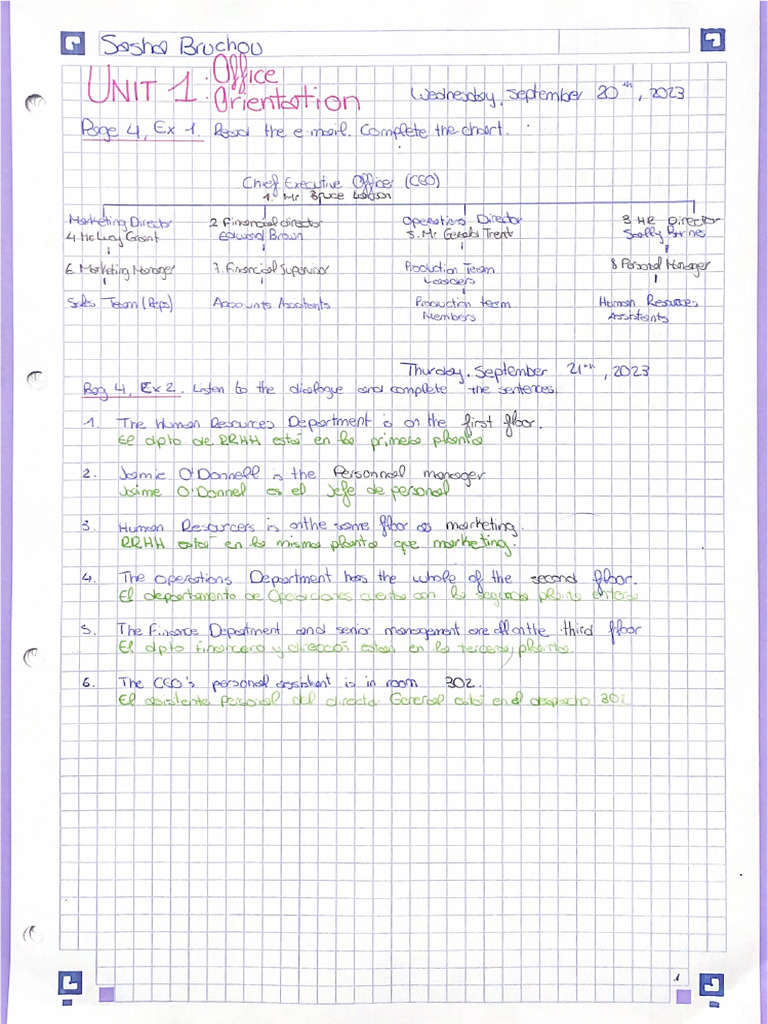 Sasha Bruchou
UNIT 1: Office Orientation
Wednesday, September 20th, 2023
Page 4, Ex 1. Read the e mail. Complete the chart.
Chief Executive Officer (CEO)
1. Mr Bruce Watson
Marketing Director 2 Financial director Operations Director 3 HR Director
4. Mr Lucy Grant Edward Brown 5. Mr Gerald Trent Sally Barnes
6. Marketing Manager 7. Financial Supervisor Production Team Leaders 8 Personal Manager
Sales Team (Reps) Accounts Assistants Production team Members Human Resources Assistants
Thursday, September 21th, 2023
Pag 4, Ex 2. Listen to the dialogue and complete the sentences.
1. The Human Resources Department is on the first floor.
El dpto de RRHH está en la primera planta
2. Jamie O'Donnell is the Personnal manager
Jaime O'Donnel es el Jefe de personal
3. Human Resourcers is onthe same floor as marketing.
RRHH está en la misma planta que marketing.
4. The operations Department has the whole of the second floor.
El departamento de Operaciones cuenta con la segunda planta entera
5. The Finance Department and senior management are all onthe third floor
El dpto financiero y dirección están en la tercera planta.
6. The CEO's personal assistent is in room 302.
El asistente personal del General está en el despacho 302
1